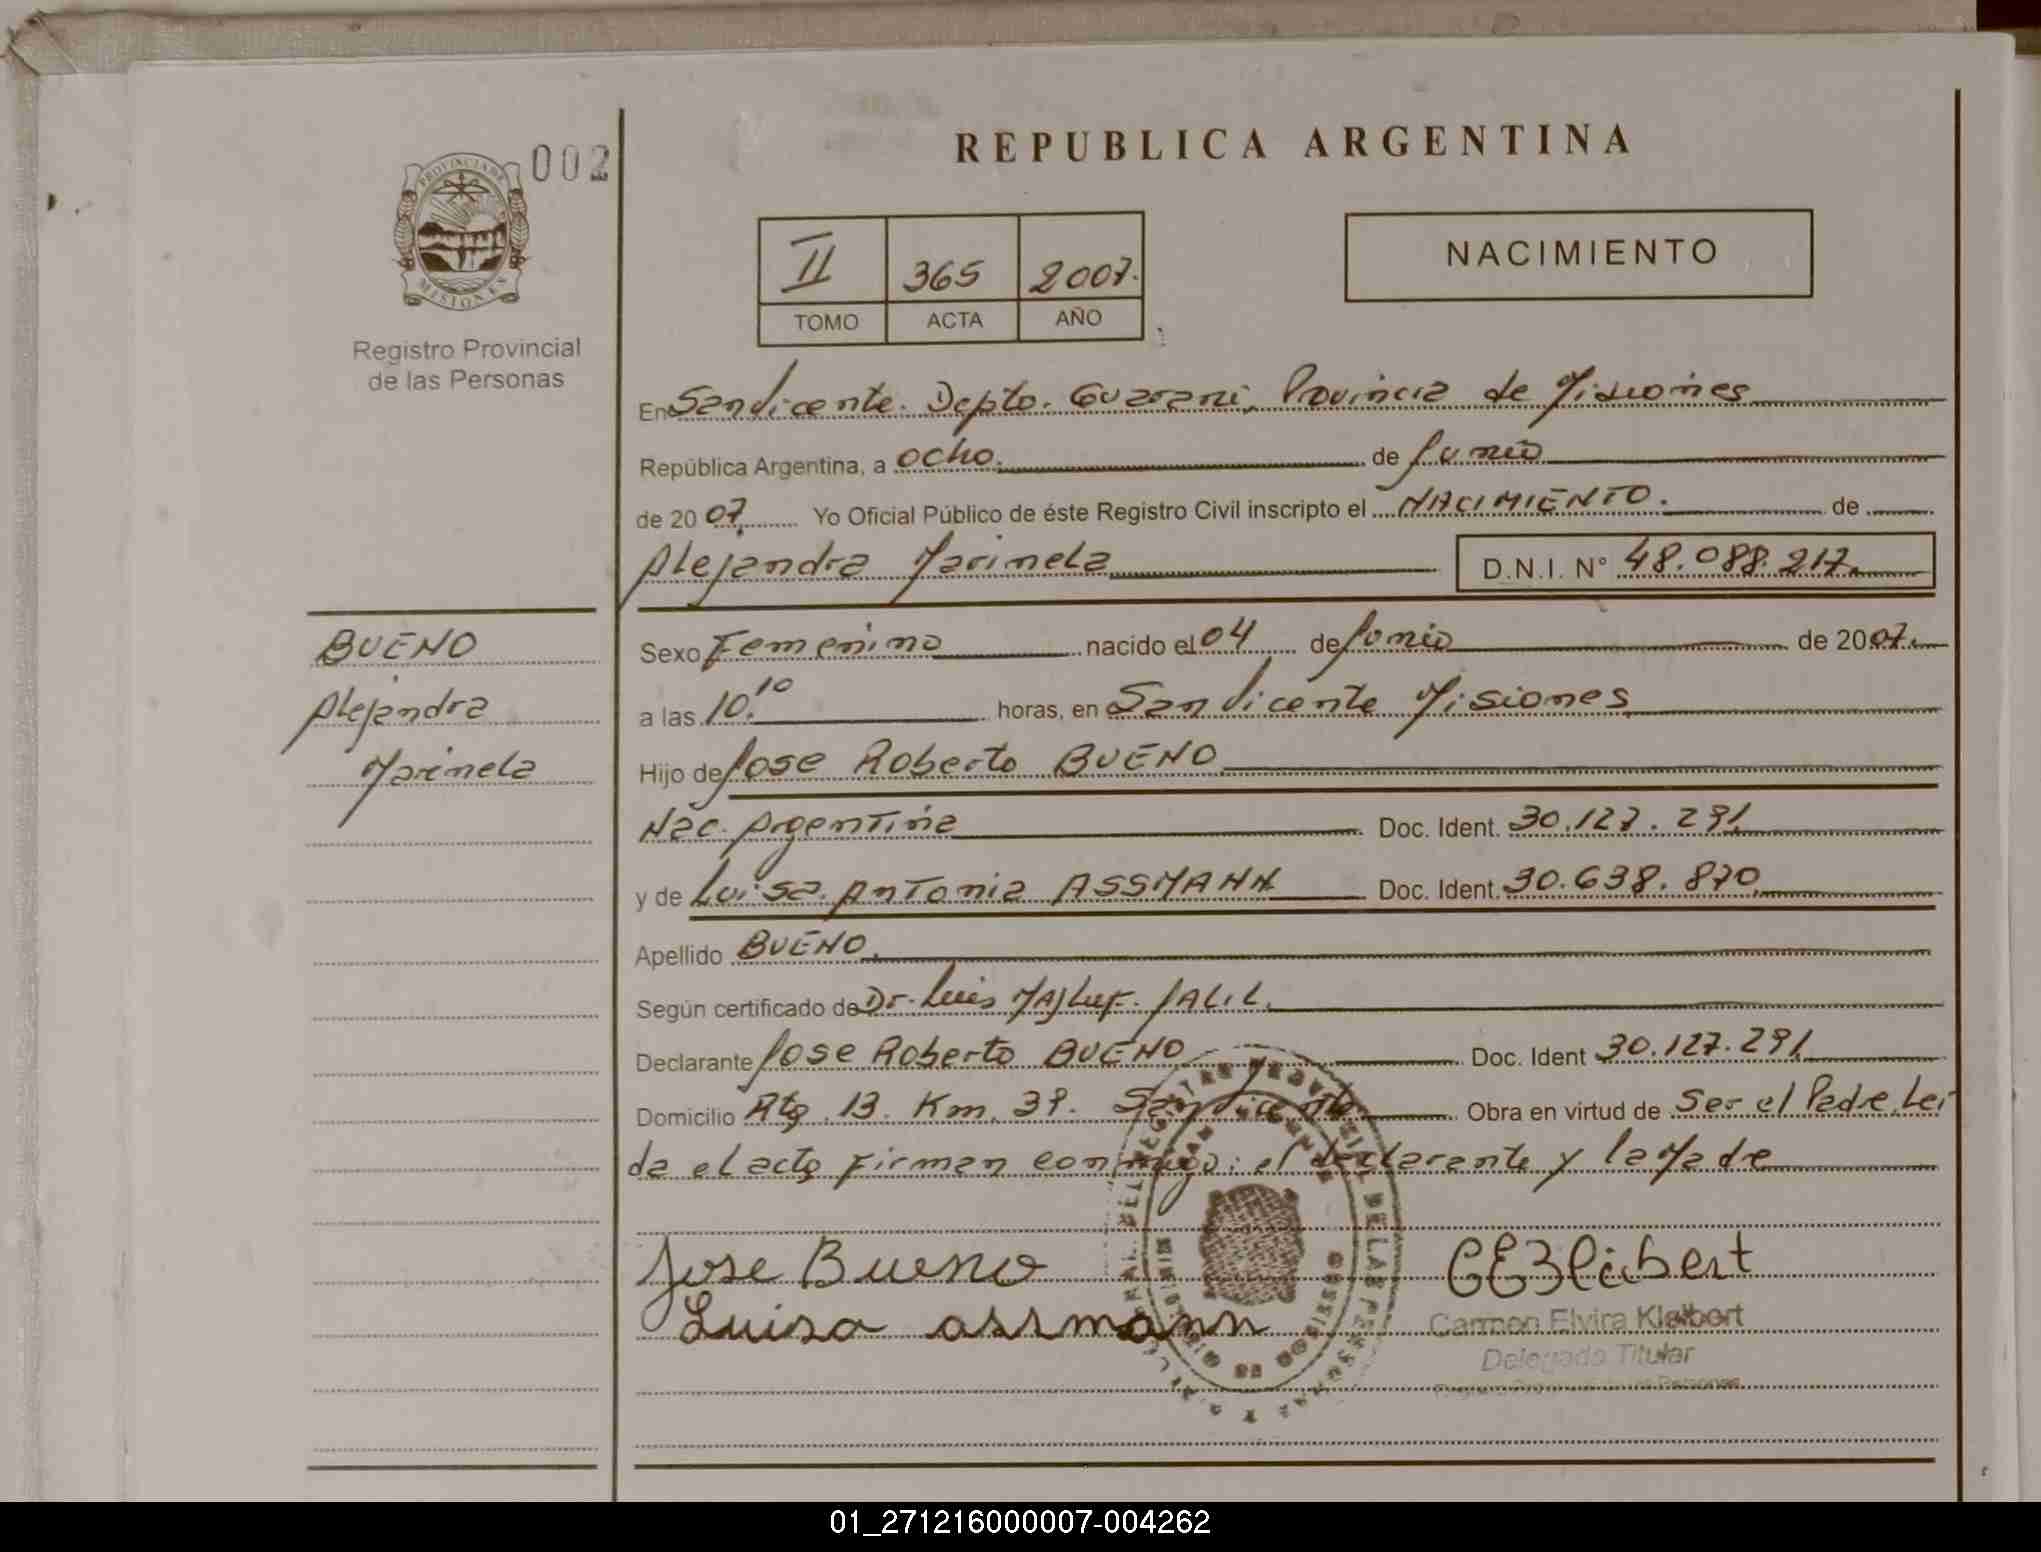 REPUBLICA ARGENTINA
002
PROVINCIA DE
MISIONES
Registro Provincial
de las Personas
II 365 2007.
TOMO ACTA AÑO
NACIMIENTO
En San Vicente. Depto. Guarani, Provincia de Misiones
República Argentina, a ocho. de Junio
de 2007. Yo Oficial Público de éste Registro Civil inscripto el NACIMIENTO. de
Alejandra Marinela D.N.I. N° 48.088.217.
BUENO
Alejandra
Marinela
Sexo Femenino nacido el 04 de Junio de 2007.
a las 10.10 horas, en San Vicente Misiones
Hijo de Jose Roberto BUENO
Nac. Argentina Doc. Ident. 30.127.291.
y de Luisa Antonia ASSMANN Doc. Ident. 30.638.870
Apellido BUENO.
Según certificado de Dr. Luis Majluf. JALIL.
Declarante Jose Roberto BUENO Doc. Ident 30.127.291.
Domicilio Rta. 13. Km. 39. San Vicente Obra en virtud de Ser el Padre. Lei
da el acta Firman conmigo: el declarante y la Madre
Jose Bueno
Luisa assmann
Carmen Elvira Kleibert
Delegada Titular
01_271216000007-004262